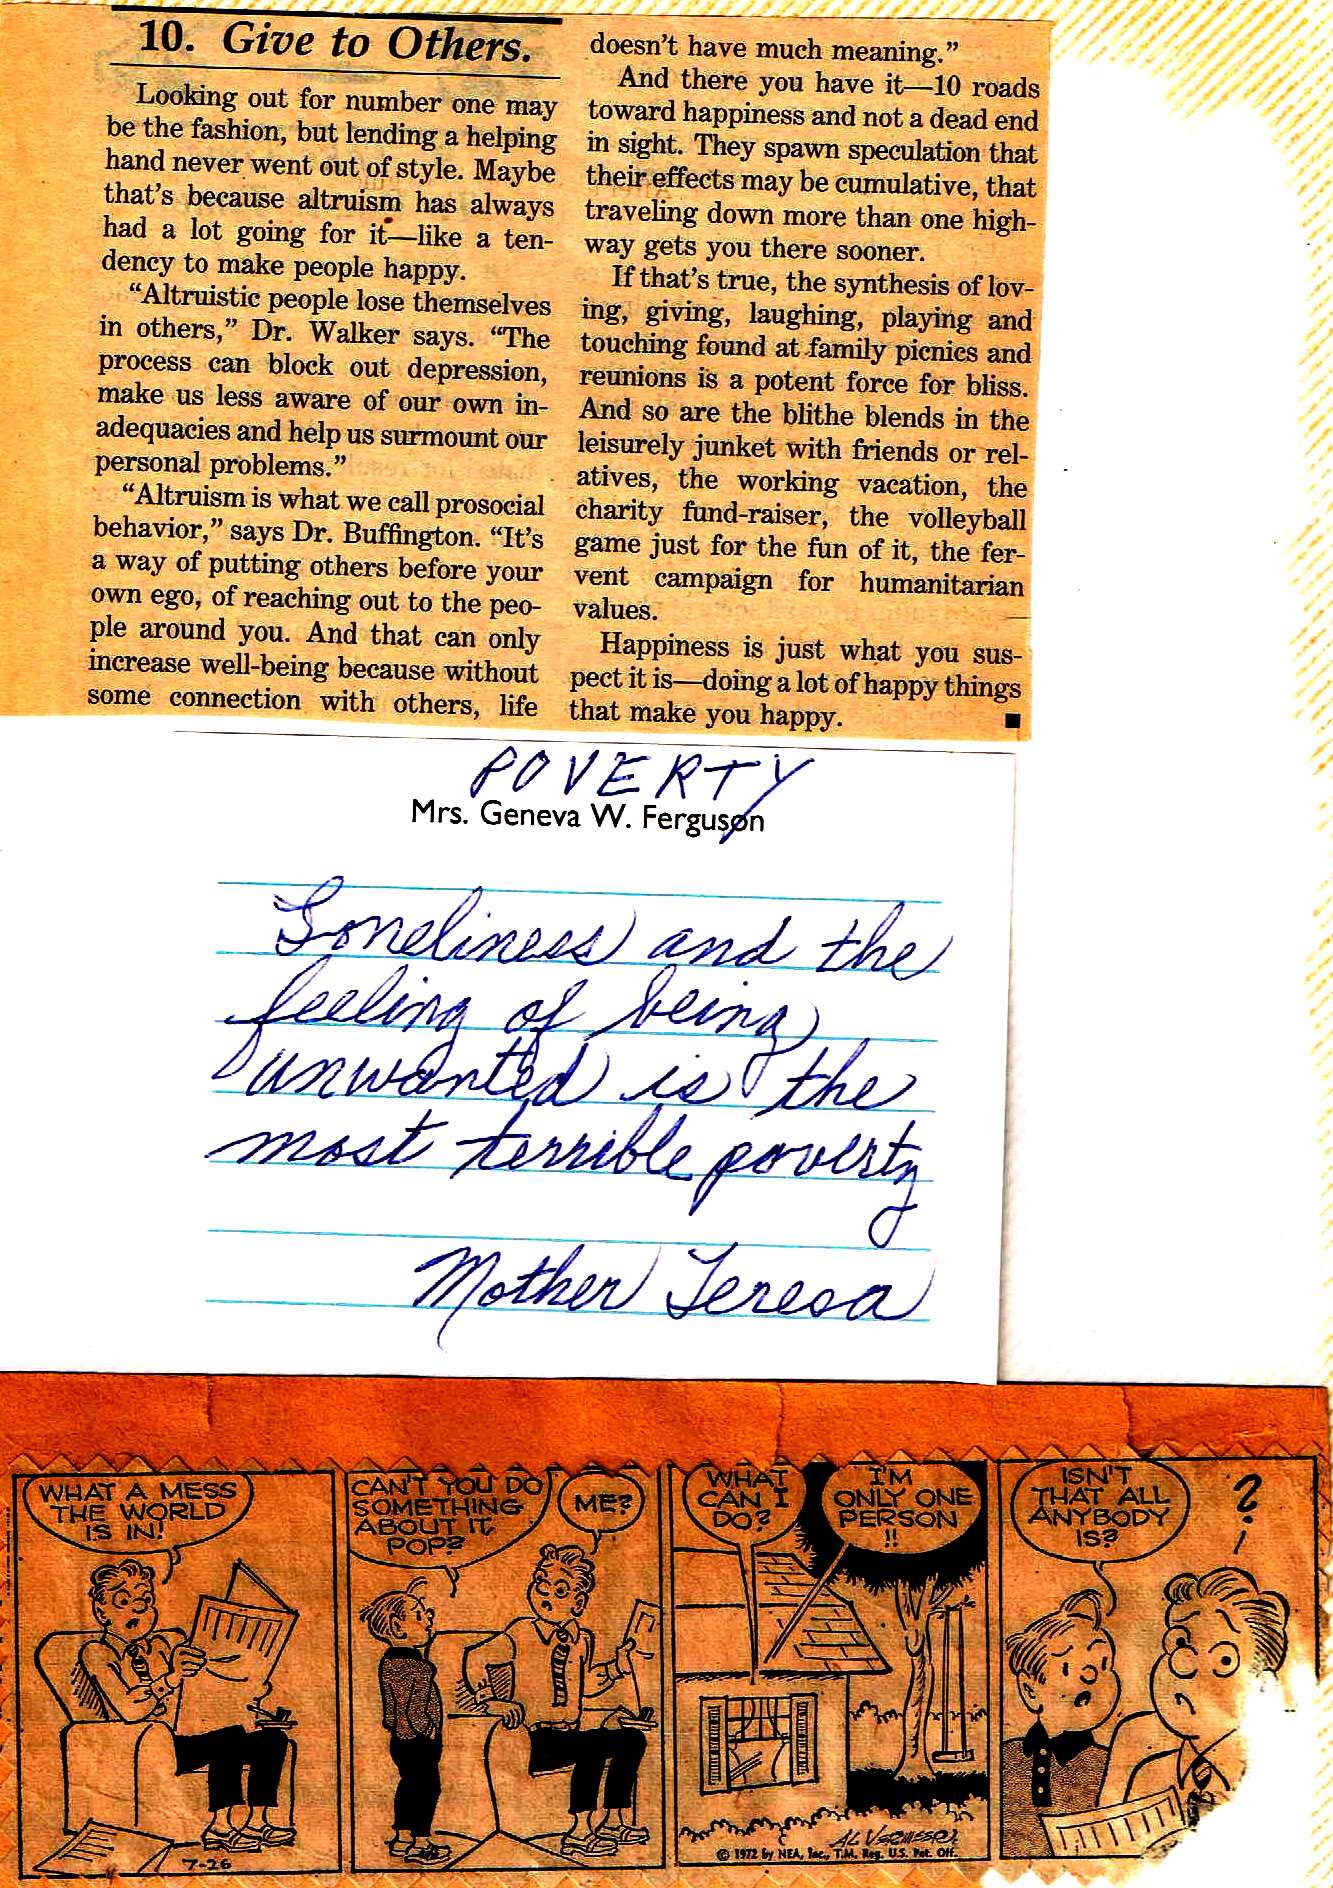 10. Give to Others.
Looking out for number one may
be the fashion, but lending a helping
hand never went out of style. Maybe
that's because altruism has always
had a lot going for it—like a ten-
dency to make people happy.
“Altruistic people lose themselves
in others,” Dr. Walker says. “The
process can block out depression,
make us less aware of our own in-
adequacies and help us surmount our
personal problems.”
“Altruism is what we call prosocial
behavior,” says Dr. Buffington. “It's
a way of putting others before your
own ego, of reaching out to the peo-
ple around you. And that can only
increase well-being because without
some connection with others, life
doesn't have much meaning.”
And there you have it—10 roads
toward happiness and not a dead end
in sight. They spawn speculation that
their effects may be cumulative, that
traveling down more than one high-
way gets you there sooner.
If that's true, the synthesis of lov-
ing, giving, laughing, playing and
touching found at family picnics and
reunions is a potent force for bliss.
And so are the blithe blends in the
leisurely junket with friends or rel-
atives, the working vacation, the
charity fund-raiser, the volleyball
game just for the fun of it, the fer-
vent campaign for humanitarian
values.
Happiness is just what you sus-
pect it is—doing a lot of happy things
that make you happy.
POVERTY
Mrs. Geneva W. Ferguson
Loneliness and the
feeling of being
unwanted is the
most terrible poverty
Mother Teresa
WHAT A MESS
THE WORLD
IS IN!
7-26
CAN'T YOU DO
SOMETHING
ABOUT IT,
POP?
ME?
WHAT
CAN I
DO?
I'M
ONLY ONE
PERSON
!!
AL VERMEER
© 1972 by NEA, Inc., T.M. Reg. U.S. Pat. Off.
ISN'T
THAT ALL
ANYBODY
IS?
?